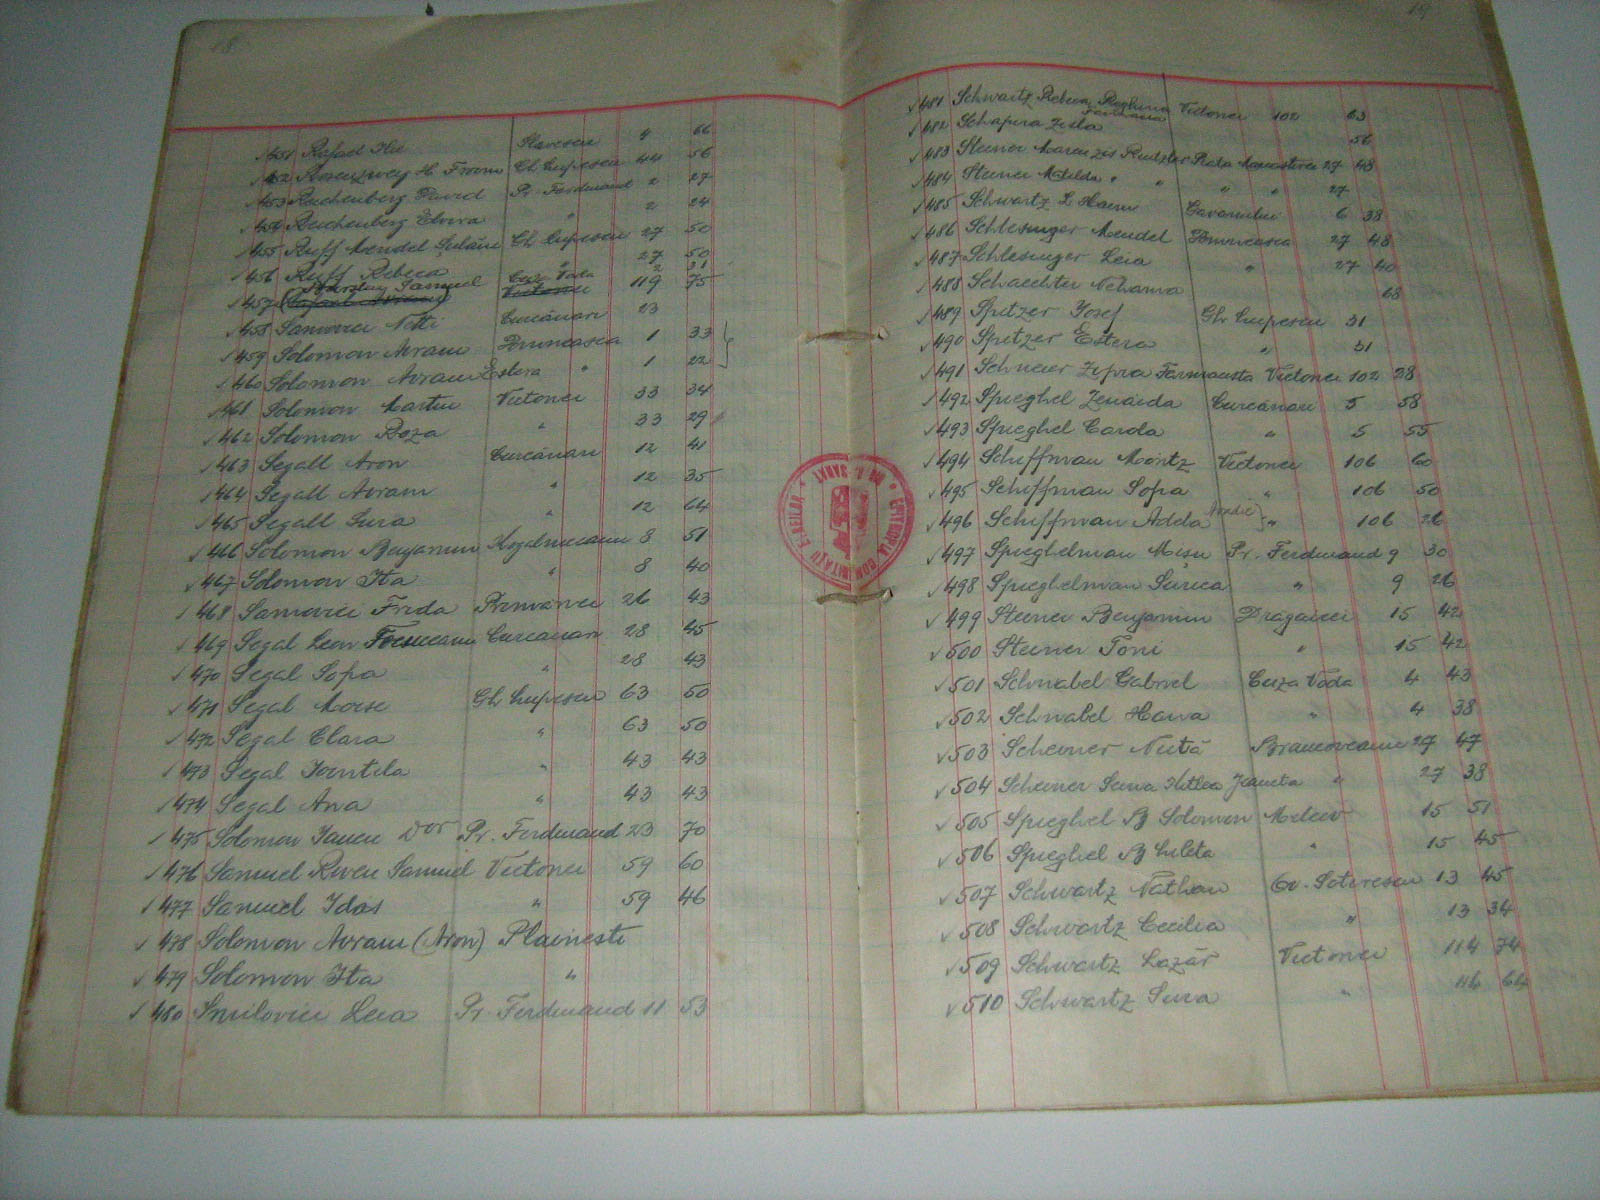 18
451 Rafael Itic Slavescu 4 66
452 Rosenzweig H. Froim Gh Lupescu 44 56
453 Reichenberg David Pr. Ferdinand 2 27
454 Reichenberg Elvira " 2 24
455 Ruff Mendel Gh Lupescu 27 50
456 Ruff Rebeca " 27 50
Samuel Cuza Voda 2 31
457 (Rafael Avram) Victoriei 119 75
458 Samovici Netti Curcănari 23
459 Solomon Avram Domneasca 1 33
460 Solomon Avram Estera " 1 22
461 Solomon Martin Victoriei 33 34
462 Solomon Roza " 33 29
463 Segall Aron Curcănari 12 41
464 Segall Avram " 12 35
465 Segall Sura " 12 64
466 Solomon Benjamin Kogălniceanu 8 51
467 Solomon Ita " 8 40
468 Samovici Frida Primăriei 26 43
469 Segal Leon Focsneanu Curcanari 28 45
470 Segal Sofia " 28 43
471 Segal Moise Gh Lupescu 63 50
472 Segal Clara " 63 50
473 Segal " 43 43
474 Segal Ana " 43 43
475 Solomon Iancu Dor Pr. Ferdinand 23 70
476 Samuel Riven Samuel Victoriei 59 60
477 Samuel Idas " 59 46
478 Solomon Avram (Aron) Plainesti
479 Solomon Ita "
480 Smilovici Leia Pr. Ferdinand 11 53
EPITROPIA COMUNITATII EVREILOR
19
481 Schwartz Rebeca Victoriei 102 63
482 Schapira Zisla 56
483 Steiner Piata Monastirei 27 48
484 Steiner Matilda " " " " 27
485 Schwartz L Haim Gavanului 6 38
486 Schlesinger Mendel Domneasca 27 48
487 Schlesinger Leia " 27 40
488 Schaechter Nehama 68
489 Spitzer Josef Gh Lupescu 31
490 Spitzer Estera " 31
491 Schneier Zipra Farmacista Victoriei 102 28
492 Spieghel Zenaida Curcănari 5 58
493 Spieghel Carola " 5 55
494 Schiffman Moritz Victoriei 106 60
495 Schiffman Sofia " 106 50
496 Schiffman Adela " 106 26
497 Spieghelman Misu Pr. Ferdinand 9 30
498 Spieghelman Surica " 9 26
499 Steiner Benjamin Dragaicei 15 42
500 Steiner Toni " 15 42
501 Schnabel Gabriel Cuza Voda 4 43
502 Schnabel Hana " 4 38
503 Scheiner Nută Brancoveanu 27 47
504 Scheiner Janeta " 27 38
505 Spieghel B Solomon Melciv 15 51
506 Spieghel B " 15 45
507 Schwartz Nathan Gv. Soterescu 13 45
508 Schwartz Cecilia " 13 34
509 Schwartz Lazăr Victoriei 114 74
510 Schwartz Sura " 116 64